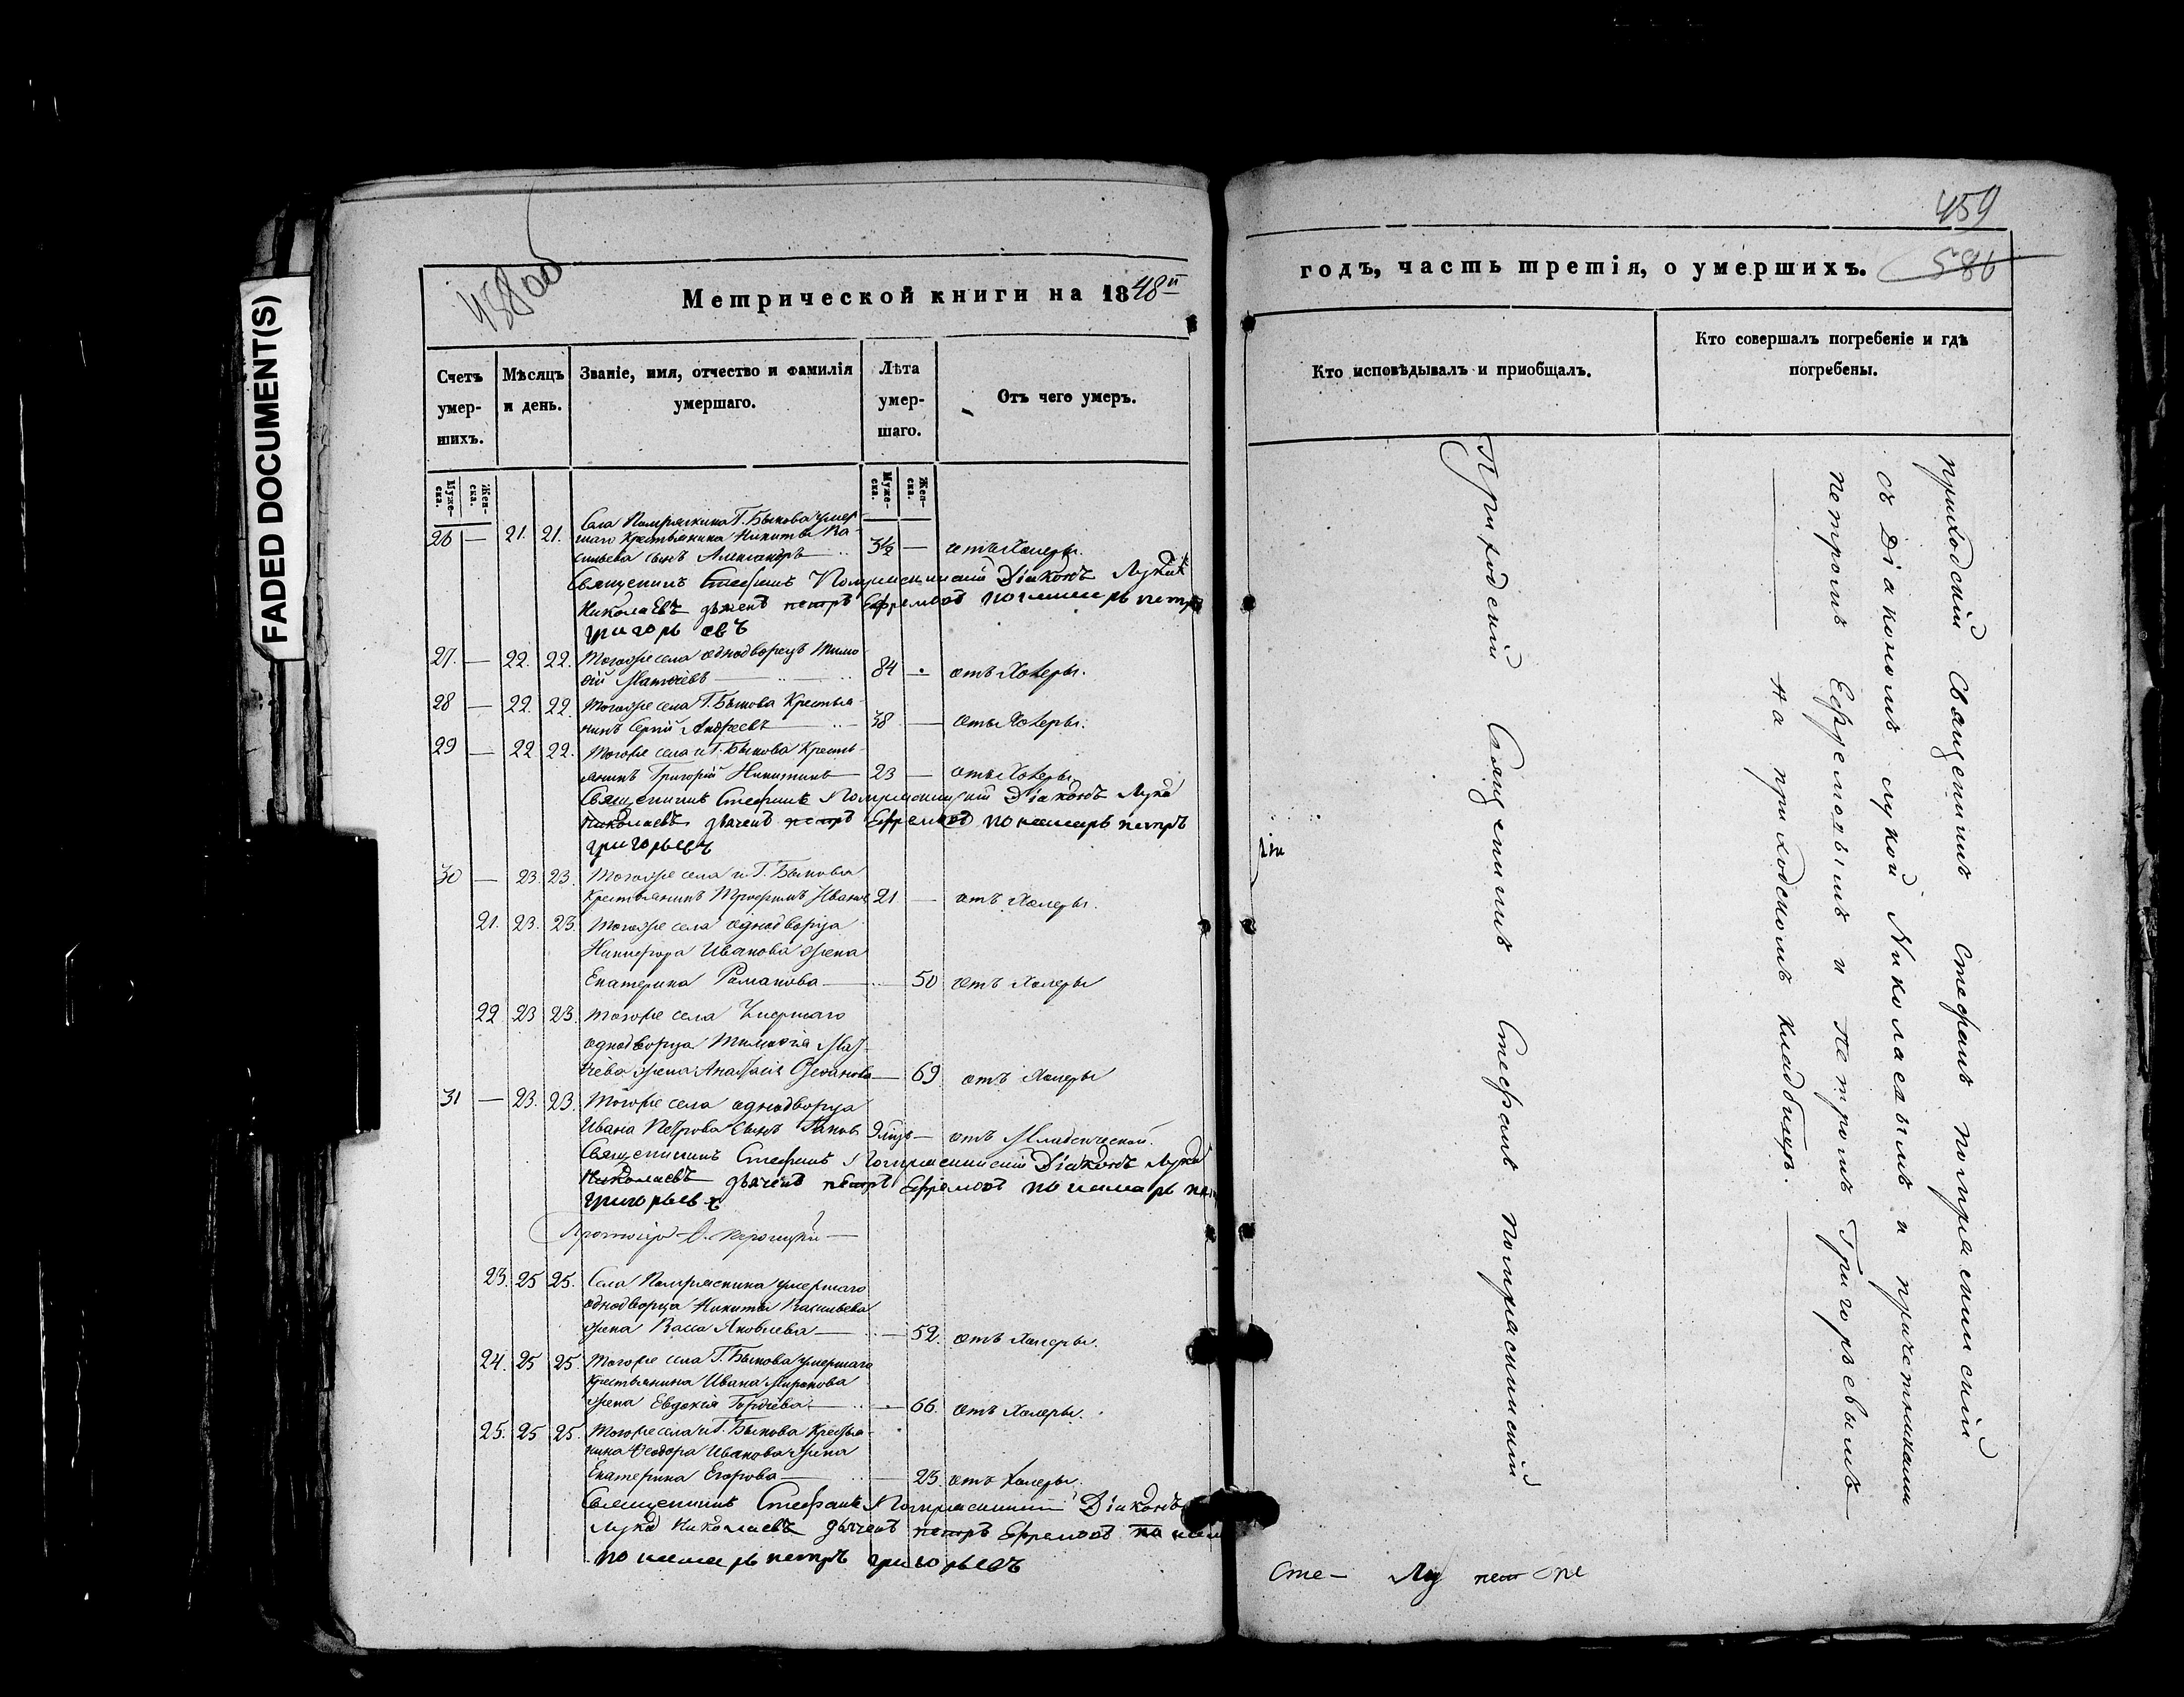 FADED DOCUMENT(S)
458 об
Метрической книги на 1848й
Счетъ умершихъ.
Мѣсяцъ и день.
Званіе, имя, отчество и фамилія умершаго.
Лѣта умершаго.
Отъ чего умеръ.
Муже-ска. Жен-ска.
Муже-ска. Жен-ска.
26 — 21. 21. Села Г. Быкова умер-
шаго Крестьянина Никиты Ва-
сильева сынъ Александръ — 3½ — отъ Холеры.
Священникъ Стефанъ Діаконъ Лука
Николаевъ дьячекъ петръ Ефремовъ пономарь петръ
григорьевъ
27. — 22. 22. Тогоже села однодворецъ Тимо-
ѳій — 84 . отъ Холеры.
28 — 22. 22. Тогоже села Г. Быкова Крестья-
нинъ Сергій Андреевъ — 38 — отъ Холеры.
29 — 22 22. Тогоже села и Г. Быкова Кресть-
янинъ Григорій Никитинъ — 23 — отъ Холеры
Священникъ Стефанъ Діаконъ Лука
Николаевъ дьячекъ петръ Ефремовъ пономарь петръ
григорьевъ
30 — 23. 23. Тогоже села и Г. Быкова
Крестьянинъ Трофимъ Ивановъ 21 — отъ Холеры.
21. 23. 23. Тогоже села однодворца
Никифора Иванова жена
Екатерина Романова — 50 отъ Холеры
22 23 23. Тогоже села Умершаго
однодворца Тимоѳія
жена — 69. отъ Холеры
31 — 23. 23. Тогоже села однодворца
Ивана Петрова сынъ — отъ Младенческой.
Священникъ Стефанъ Діаконъ Лука
Николаевъ дьячекъ петръ Ефремовъ пономарь
григорьевъ
23. 25 25. Села умершаго
однодворца Никиты Васильева
жена Васса Яковлева — 52. отъ Холеры.
24. 25 25. Тогоже села Г. Быкова умершаго
крестьянина Ивана Миронова
жена Евдокія Гордѣева — 66. отъ Холеры.
25. 25 25. Тогоже села и Г. Быкова Крестья-
нина Ѳеодора Иванова жена
Екатерина Егорова — 23. отъ Холеры.
Священникъ Стефанъ Діаконъ
Лука Николаевъ дьячекъ петръ Ефремовъ
пономарь петръ григорьевъ
459
586
годъ, часть третія, о умершихъ.
Кто исповѣдывалъ и приобщалъ.
Кто совершалъ погребеніе и гдѣ погребены.
Приходскій Священникъ Стефанъ
приходскій Священникъ Стефанъ
съ Діакономъ лукой Николаевымъ и причетниками
петромъ Ефремовымъ и Петромъ Григорьевымъ —
— на приходскомъ кладбищѣ. —
Сте — Лу пет